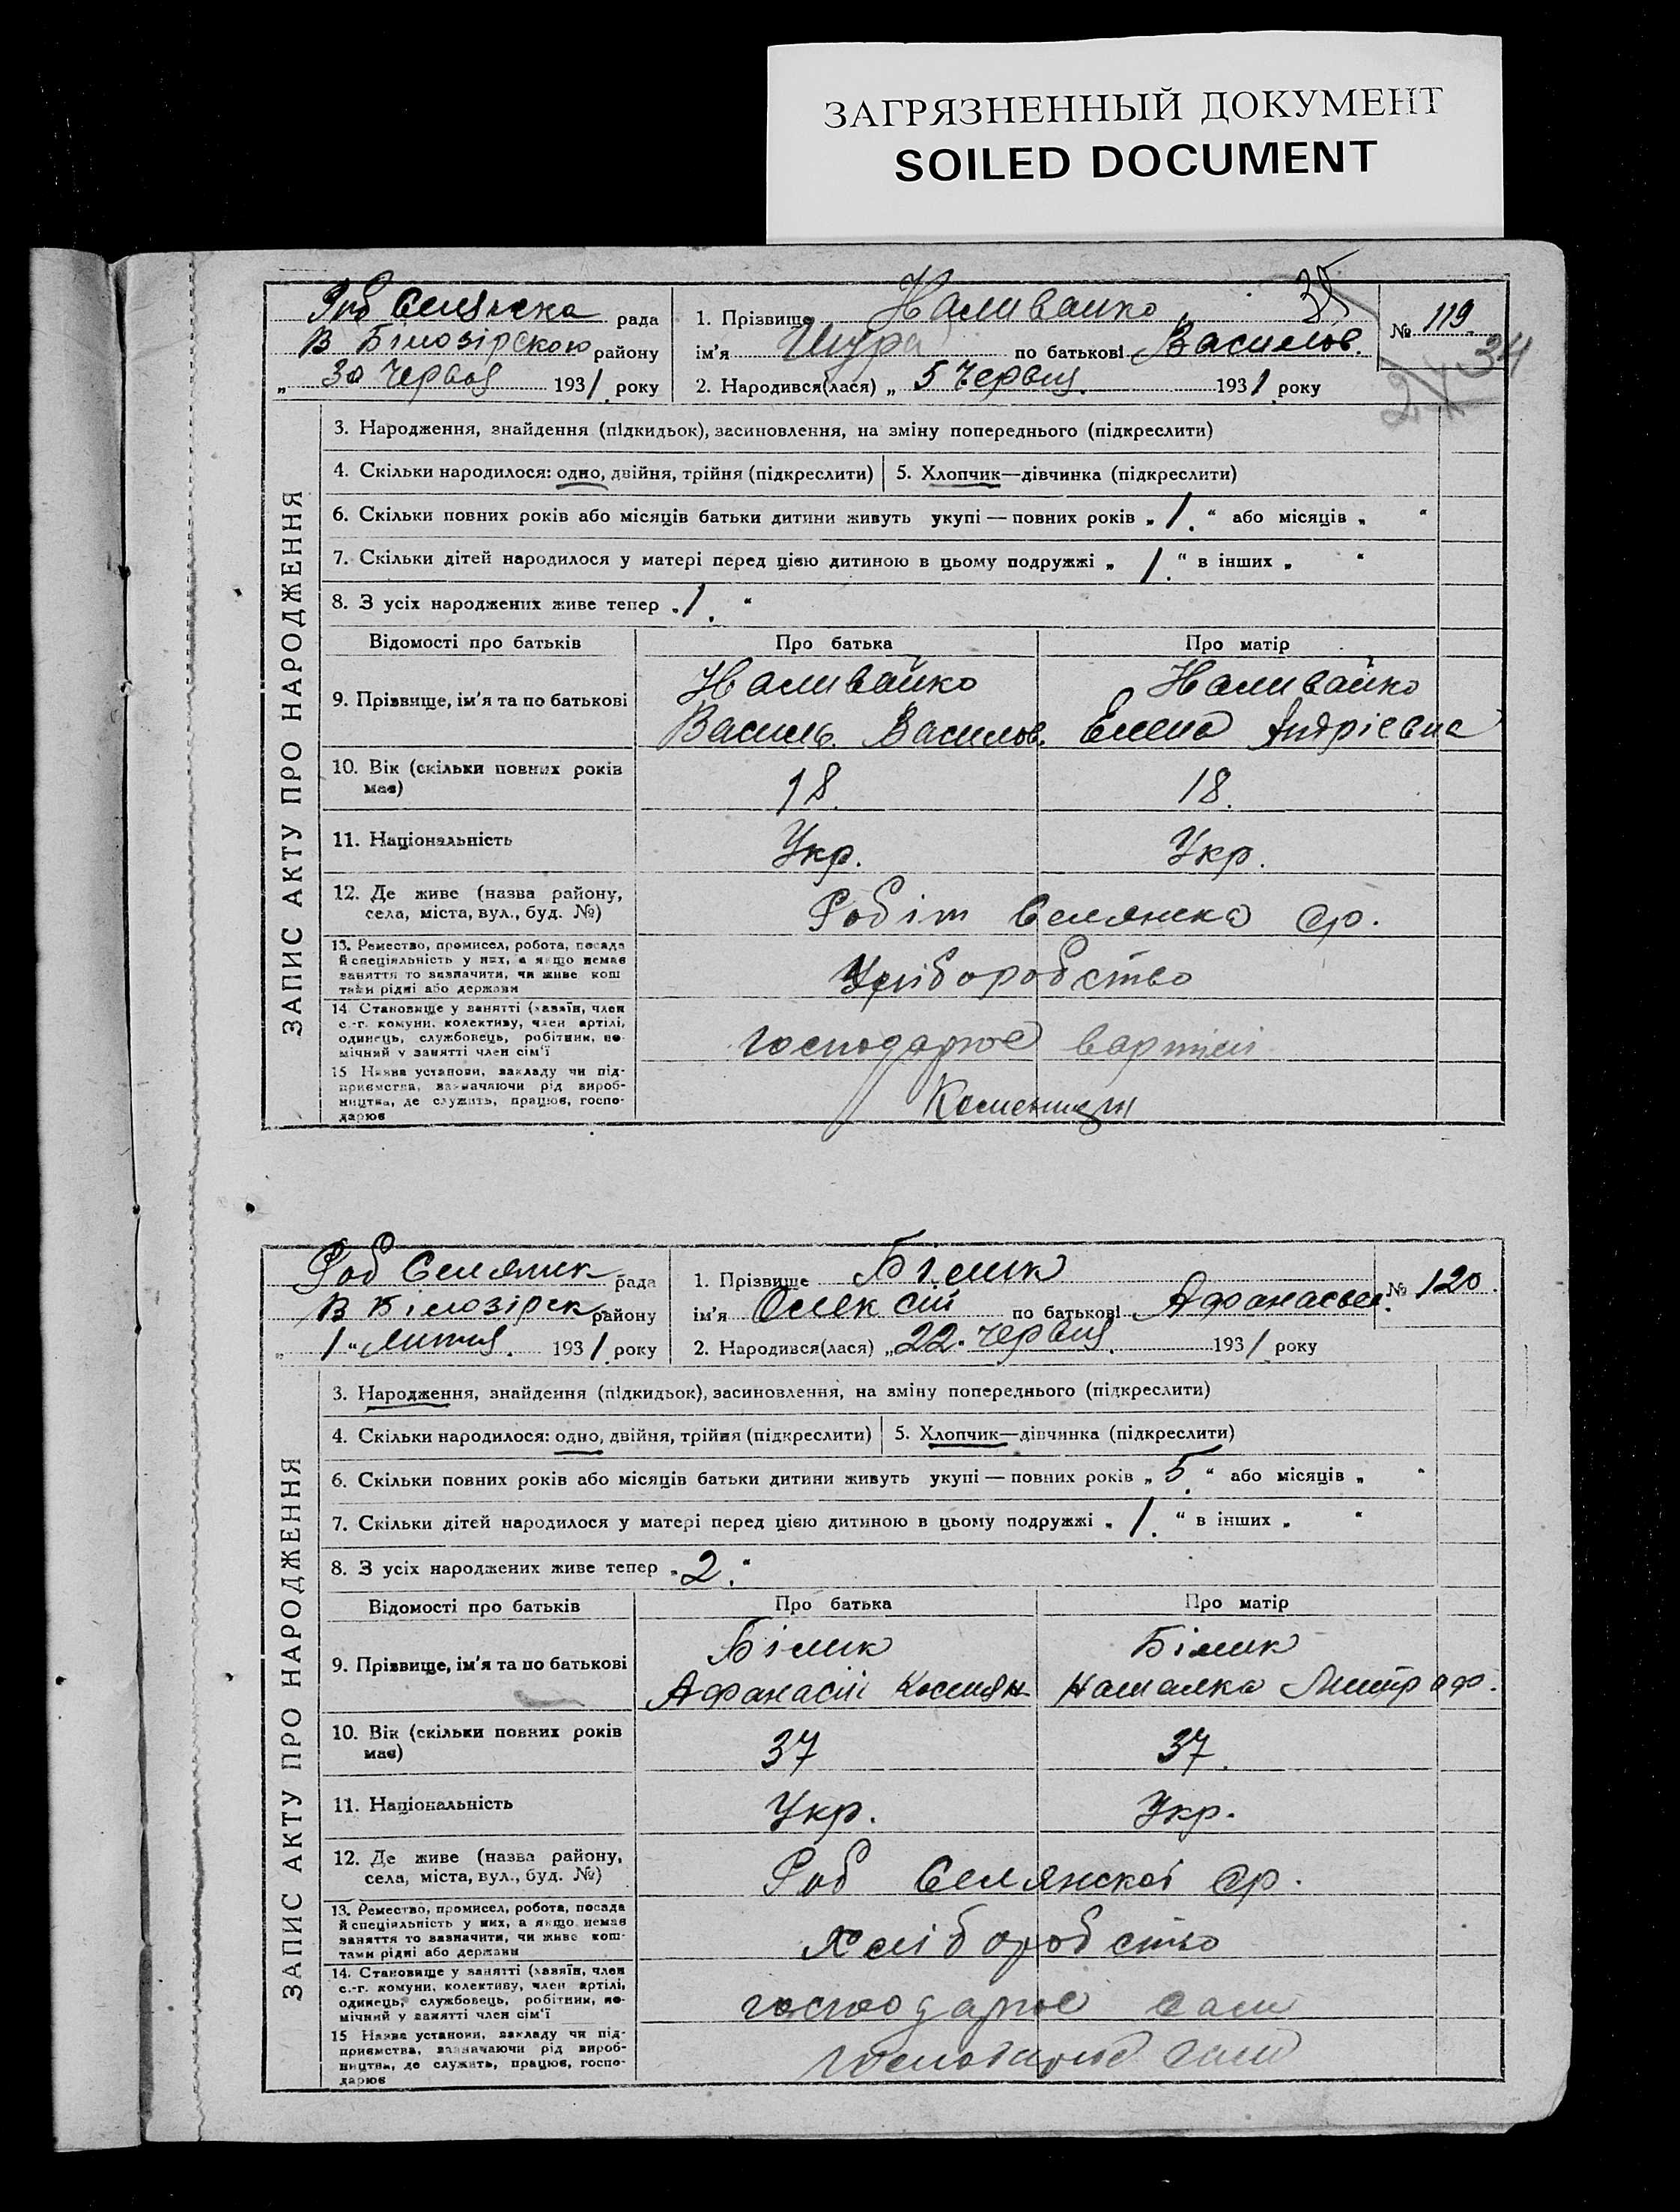 ЗАГРЯЗНЕННЫЙ ДОКУМЕНТ
SOILED DOCUMENT
ЗАПИС АКТУ ПРО НАРОДЖЕННЯ
Роб Селянска рада
В Білозірского району
„ 30 Червня 1931 року
1. Прізвище Наливайко
35
ім'я Шура по батькові Василов.
2. Народився(лася) „ 5 Червня 1931 року
№ 119
34
3. Народження, знайдення (підкидьок), засиновлення, на зміну попереднього (підкреслити)
4. Скільки народилося: одно, двійня, трійня (підкреслити) 5. Хлопчик—дівчинка (підкреслити)
6. Скільки повних років або місяців батьки дитини живуть укупі — повних років „ 1. “ або місяців „ “
7. Скільки дітей народилося у матері перед цією дитиною в цьому подружжі „ 1. “ в інших „ “
8. З усіх народжених живе тепер „ 1. “
Відомості про батьків Про батька Про матір
9. Прізвище, ім'я та по батькові
Наливайко Наливайко
Василь Василов. Елена Андріевна
10. Вік (скільки повних років має)
18. 18.
11. Національність Укр. Укр.
12. Де живе (назва району,
села, міста, вул., буд. №)
Робіт Селянска ср.
13. Ремество, промисел, робота, посада
й спеціяльність у них, а якщо немає
заняття то зазначити, чи живе кош
тами рідні або держави
Хліборобство
14. Становище у занятті (хазяїн, член
с.-г. комуни, колективу, член артілі,
одинець, службовець, робітник, по-
мічний у занятті член сім'ї
господарює вартілі
15 Назва установи, закладу чи під-
приємства, зазначаючи рід вироб-
ництва, де служить, працює, госпо-
дарює
ЗАПИС АКТУ ПРО НАРОДЖЕННЯ
Роб Селянск рада
В Білозірск району
„ 1 “ Липня 1931 року
1. Прізвище Білик
ім'я Олексій по батькові Афанасьев.
2. Народився(лася) „ 22 “ Червня 1931 року
№ 120.
3. Народження, знайдення (підкидьок), засиновлення, на зміну попереднього (підкреслити)
4. Скільки народилося: одно, двійня, трійня (підкреслити) 5. Хлопчик—дівчинка (підкреслити)
6. Скільки повних років або місяців батьки дитини живуть укупі — повних років „ 5. “ або місяців „ “
7. Скільки дітей народилося у матері перед цією дитиною в цьому подружжі „ 1. “ в інших „ “
8. З усіх народжених живе тепер „ 2. “
Відомості про батьків Про батька Про матір
9. Прізвище, ім'я та по батькові
Білик Білик
Афанасій Касиян Наталка
10. Вік (скільки повних років
має)
37 37.
11. Національність Укр. Укр.
12. Де живе (назва району,
села, міста, вул., буд. №)
Роб Селянскої ср.
13. Ремество, промисел, робота, посада
й спеціяльність у них, а якщо немає
заняття то зазначити, чи живе кош-
тами рідні або держави
Хліборобство
14. Становище у занятті (хазяїн, член
с.-г. комуни, колективу, член артілі,
одинець, службовець, робітник, по-
мічний у занятті член сім'ї
господарює сам
15 Назва установи, закладу чи під-
приємства, зазначаючи рід вироб-
ництва, де служить, працює, госпо-
дарює
господарює сам